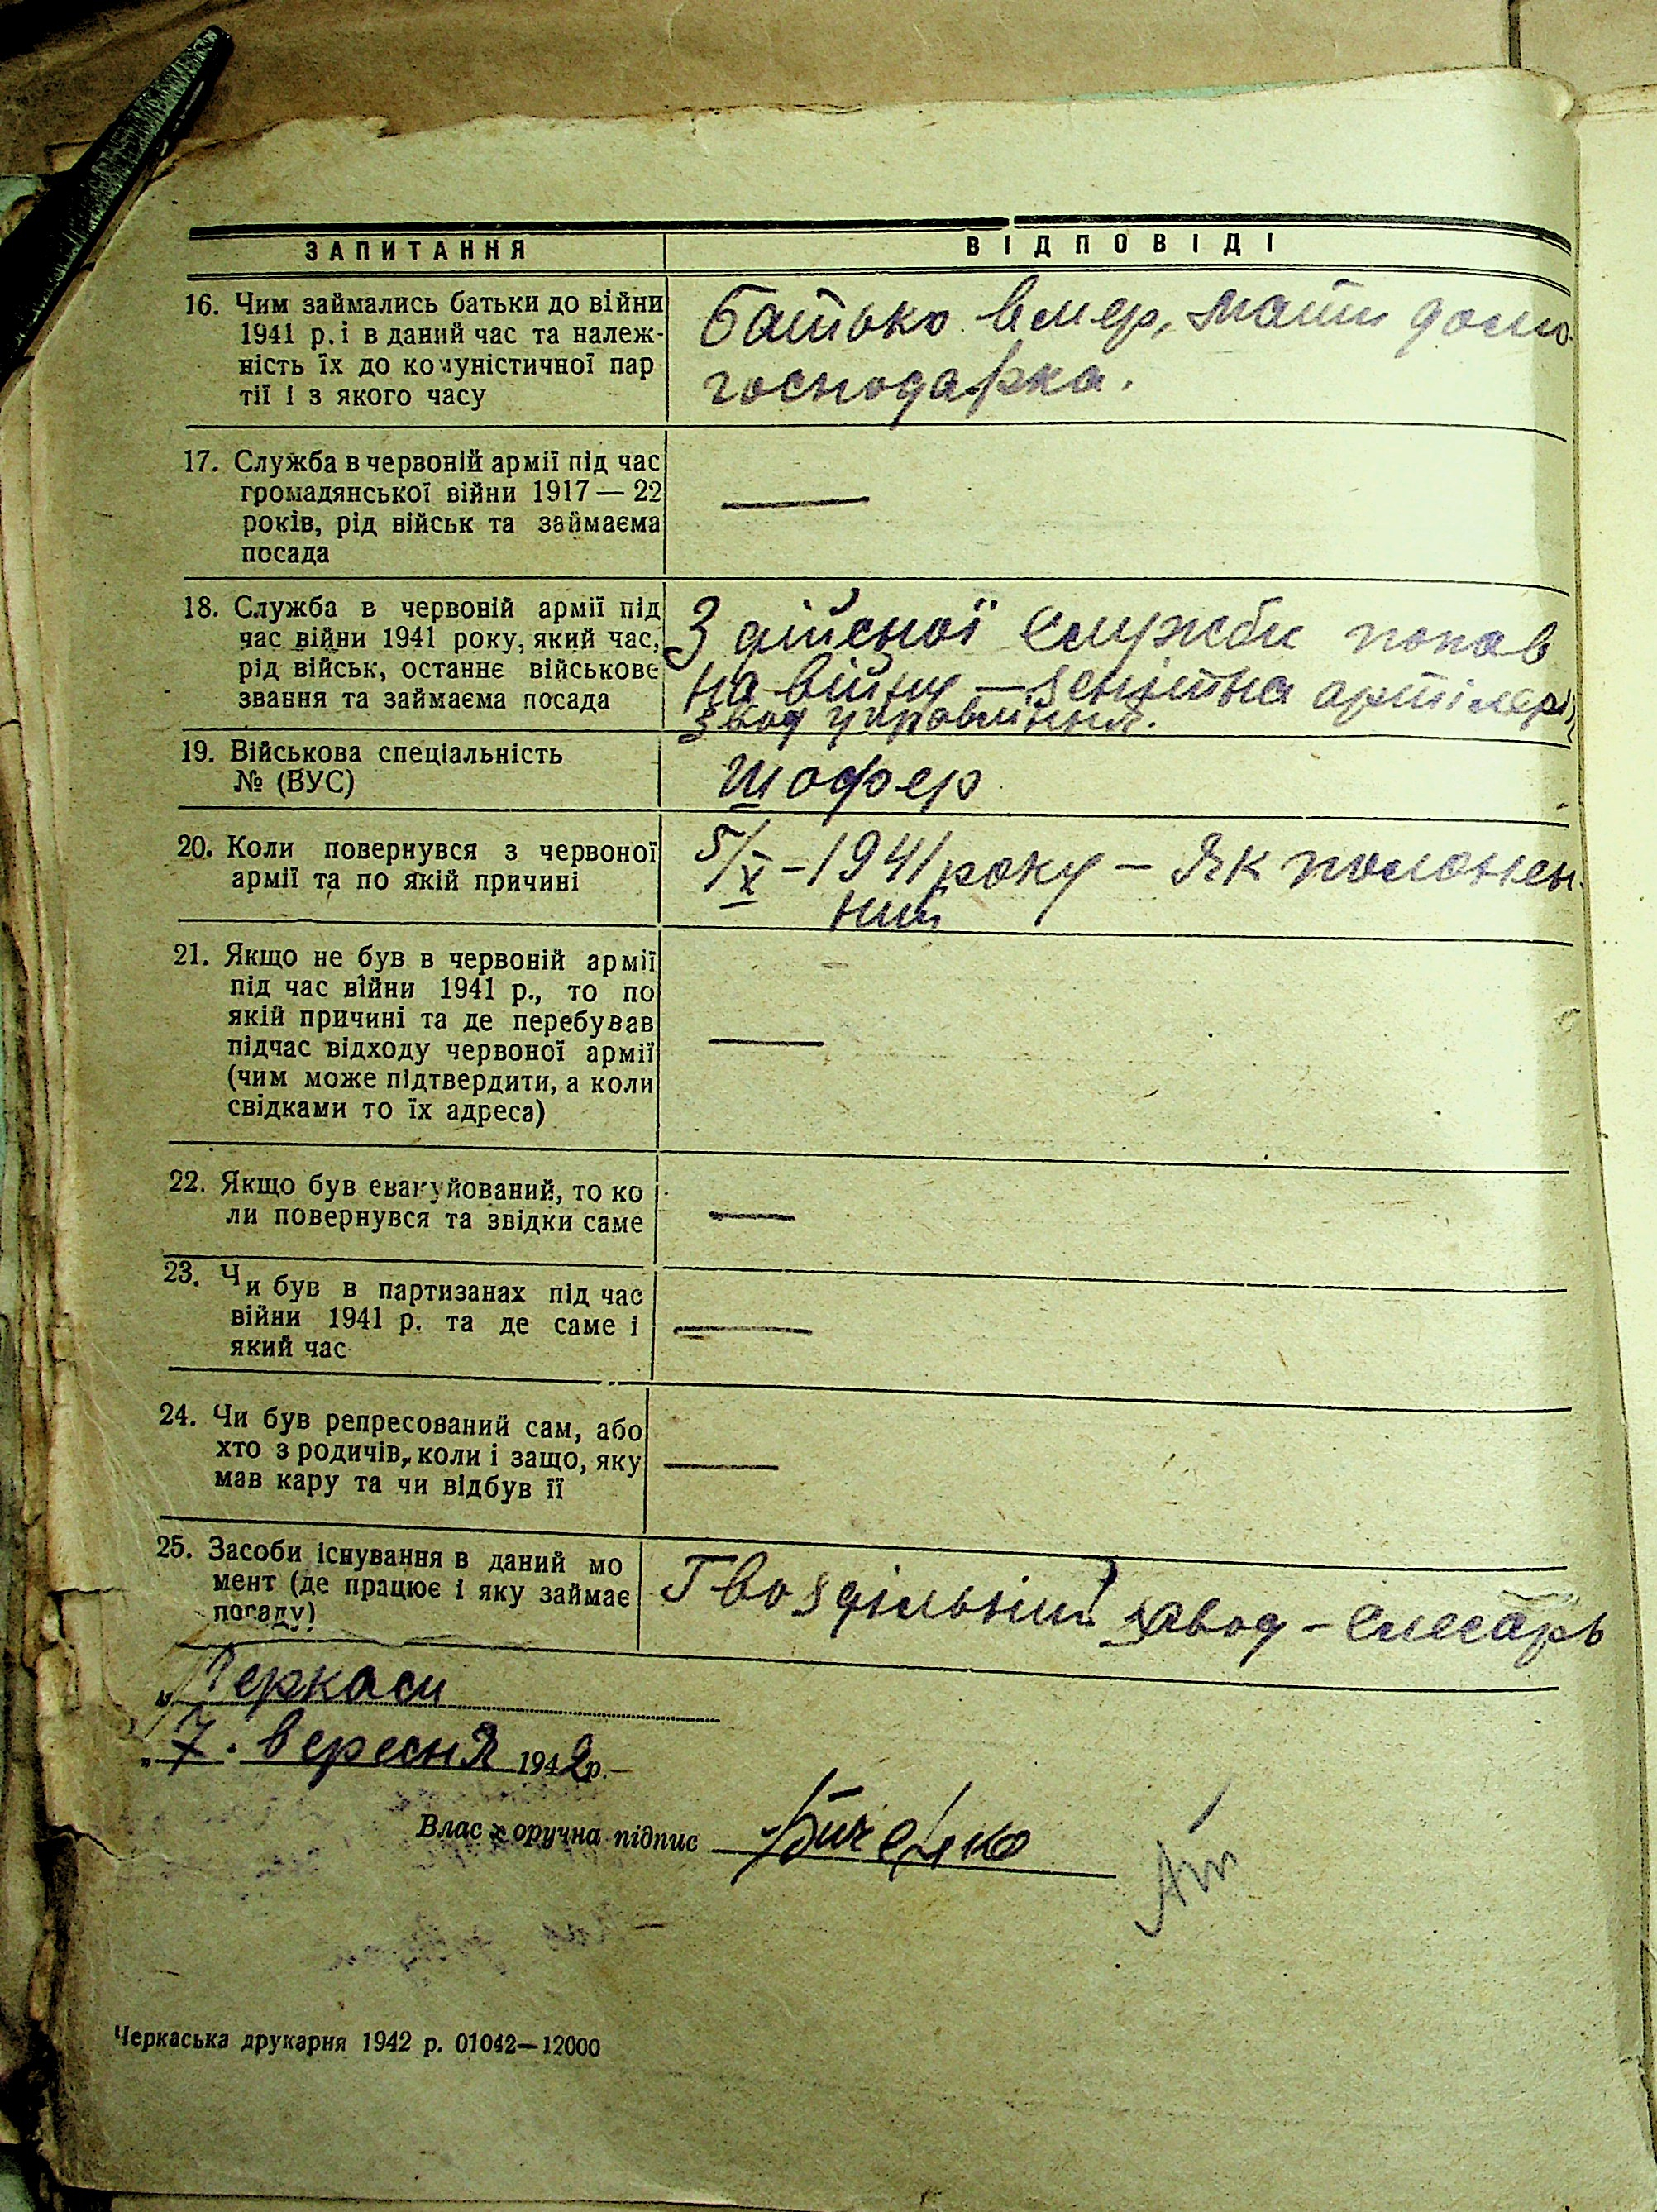 ЗАПИТАННЯ
ВІДПОВІДІ
16. Чим займались батьки до війни
1941 р. і в даний час та належ-
ність їх до комуністичної пар
тії і з якого часу
Батько вмер, мати домо-
господарка.
17. Служба в червоній армії під час
громадянської війни 1917 — 22
років, рід військ та займаєма
посада
—
18. Служба в червоній армії під
час війни 1941 року, який час,
рід військ, останнє військове
звання та займаєма посада
З дійсної служби попав
на війну — зенітна артілерія
звод управління.
19. Військова спеціальність
№ (ВУС)
Шофер
20. Коли повернувся з червоної
армії та по якій причині
5/X - 1941 року — Як положен-
ний
21. Якщо не був в червоній армії
під час війни 1941 р., то по
якій причині та де перебував
підчас відходу червоної армії
(чим може підтвердити, а коли
свідками то їх адреса)
—
22. Якщо був евакуйований, то ко
ли повернувся та звідки саме
—
23. Чи був в партизанах під час
війни 1941 р. та де саме і
який час
—
24. Чи був репресований сам, або
хто з родичів, коли і защо, яку
мав кару та чи відбув її
—
25. Засоби існування в даний мо
мент (де працює і яку займає
посаду)
Гвоздільний завод - слесарь
м. Черкаси
„ 7 . вересня 1942 р. —
Власноручна підпис
Черкаська друкарня 1942 р. 01042—12000